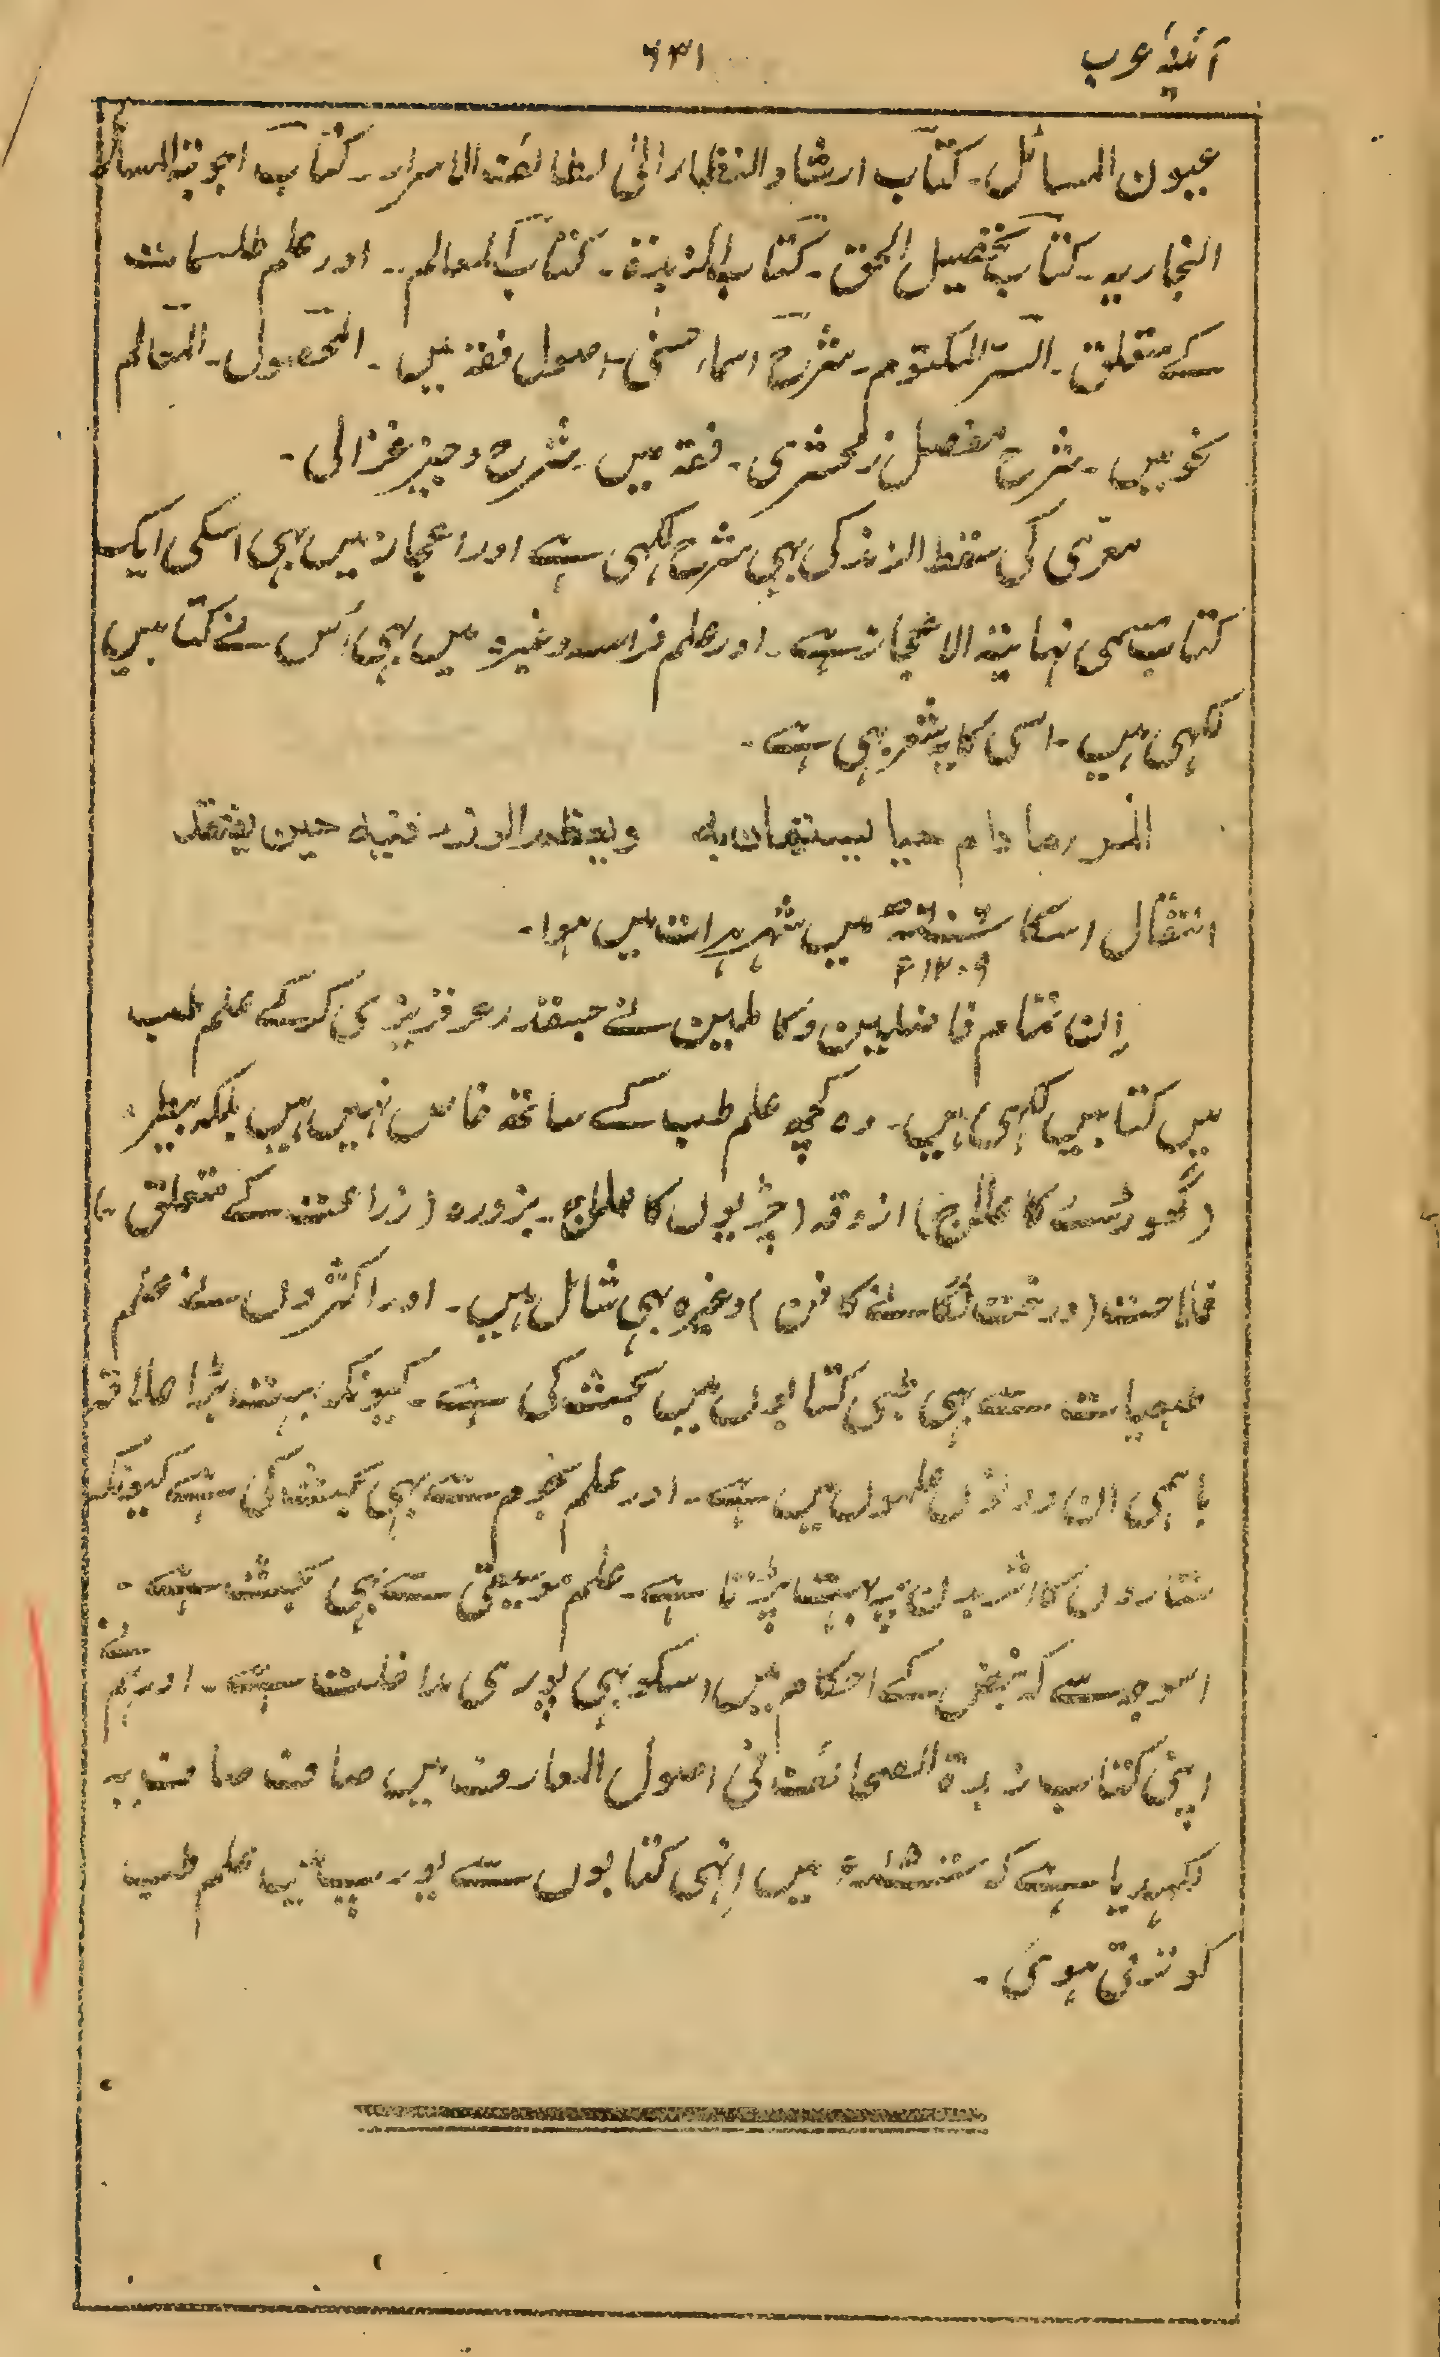 آئینۂ عرب
۶۳۱
عیون المسائل۔ کتاب ارشاد النظار الیٰ لطائف الاسرار۔ کتاب اجوبۃ المسائل
النجاریہ۔ کتاب تحصیل الحق۔ کتاب الزبدۃ۔ کتاب المعالم۔ اور علم طلسمات
کے متعلق۔ السّر المکتوم۔ شرح اسماء حسنیٰ۔ اصول فقہ میں۔ المحصول۔ المعالم
نحو میں۔ شرح مفصل زمخشری۔ فقہ میں۔ شرح وجیز غزالی۔
معرّی کی سقط الزند کی بہی شرح لکہی ہے اور اعجاز میں بہی اسکی ایک
کتاب مسمّی نہایۃ الاعجاز ہے۔ اور علم فراسہ وغیرہ میں بہی اُس نے کتابیں
لکہی ہیں۔ اسی کا یہ شعر بہی ہے۔
المرء ما دام حیا یستهان به ویعظم الرزء فیه حین یفتقد
انتقال اسکا ۶۰۶ھ میں شہر ہرات میں ہوا۔
۱۲۰۹ء
اِن تمام فاضلین و کاملین نے جسقدر عرقریزی کرکے علم طب
میں کتابیں لکہی ہیں۔ وہ کچہ علم طب کے ساتھ خاص نہیں ہیں بلکہ بیطرہ
(گھوڑے کا علاج) ازوقہ (چڑیوں کا علاج۔ بزورہ (زراعت کے متعلق۔)
فلاحت (درخت لگانے کا فن) وغیرہ بہی شامل ہیں۔ اور اکثروں نے علم
ہیات سے بہی طبی کتابوں میں بحث کی ہے۔ کیونکہ بہت بڑا علاقہ
باہمی ان دونوں علموں میں ہے۔ اور علم نجوم سے بہی بحث کی ہے کیونکہ
ستاروں کا اثر بدن پر بہت پڑتا ہے۔ علم موسیقی سے بہی بحث ہے۔
اسوجہ سے کہ نبض کے احکام میں اسکو بہی پوری مداخلت ہے۔ اور ہم نے
اپنی کتاب زبدۃ الصحائف فی اصول المعارف میں صاف صاف یہ
لکہدیا ہے کہ میں اِنہی کتابوں سے یورپ میں علم طب
کو ترقی ہوئی۔